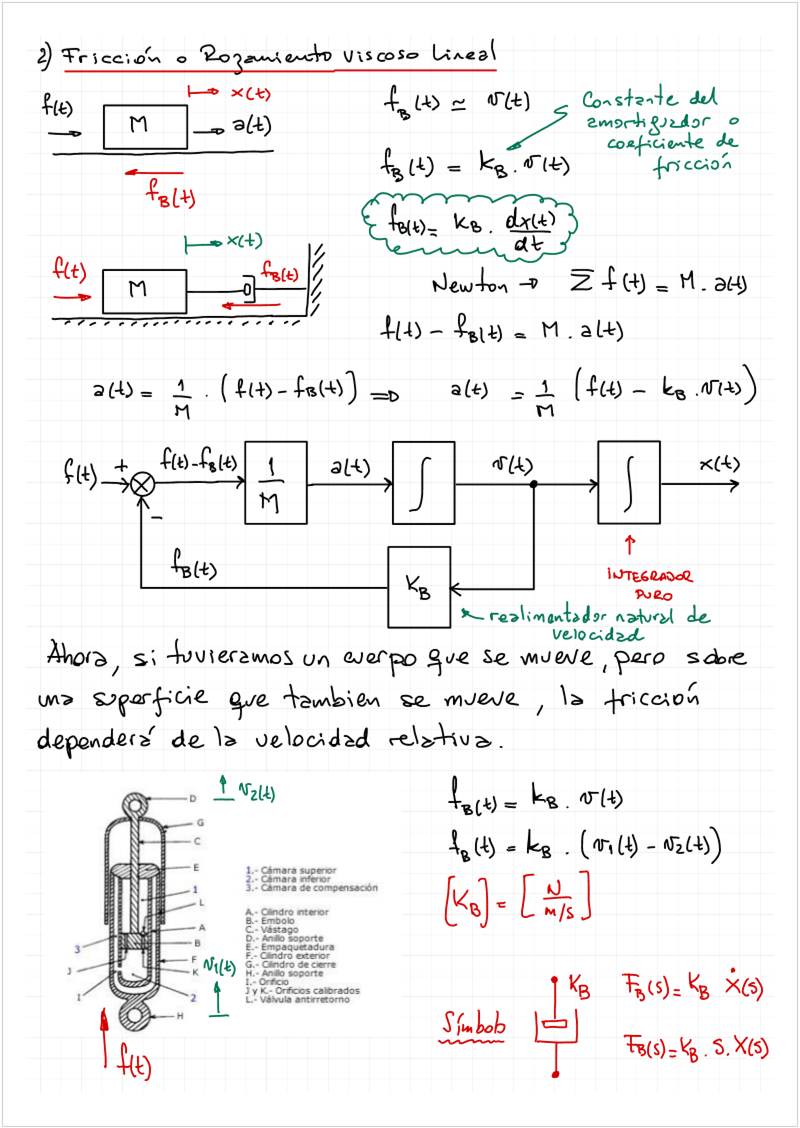 2) Fricción o Rozamiento viscoso lineal
f(t)
M
x(t)
a(t)
f_B(t)
f_B(t) ≃ v(t)
f_B(t) = k_B . v(t)
Constante del
amortiguador o
coeficiente de
fricción
f_B(t) = k_B . dx(t)/dt
x(t)
f(t)
M
f_B(t)
Newton → Σ f(t) = M . a(t)
f(t) - f_B(t) = M . a(t)
a(t) = 1/M . (f(t) - f_B(t)) ⇒ a(t) = 1/M (f(t) - k_B . v(t))
f(t) + - f(t)-f_B(t) 1/M a(t) ∫ v(t) ∫ x(t)
f_B(t) K_B
INTEGRADOR
PURO
realimentador natural de
velocidad
Ahora, si tuvieramos un cuerpo que se mueve, pero sobre
una superficie que tambien se mueve, la fricción
dependerá de la velocidad relativa.
v2(t)
D
G
C
E
1
L
A
3
B
F
J
K
I
2
H
v1(t)
f(t)
1.- Cámara superior
2.- Cámara inferior
3.- Cámara de compensación
A.- Cilindro interior
B.- Embolo
C.- Vástago
D.- Anillo soporte
E.- Empaquetadura
F.- Cilindro exterior
G.- Cilindro de cierre
H.- Anillo soporte
I.- Orificio
J y K.- Orificios calibrados
L.- Válvula antirretorno
f_B(t) = k_B . v(t)
f_B(t) = k_B . (v1(t) - v2(t))
[K_B] = [N / m/s]
Símbolo
K_B
F_B(s) = K_B Ẋ(s)
F_B(s) = K_B . S. X(s)